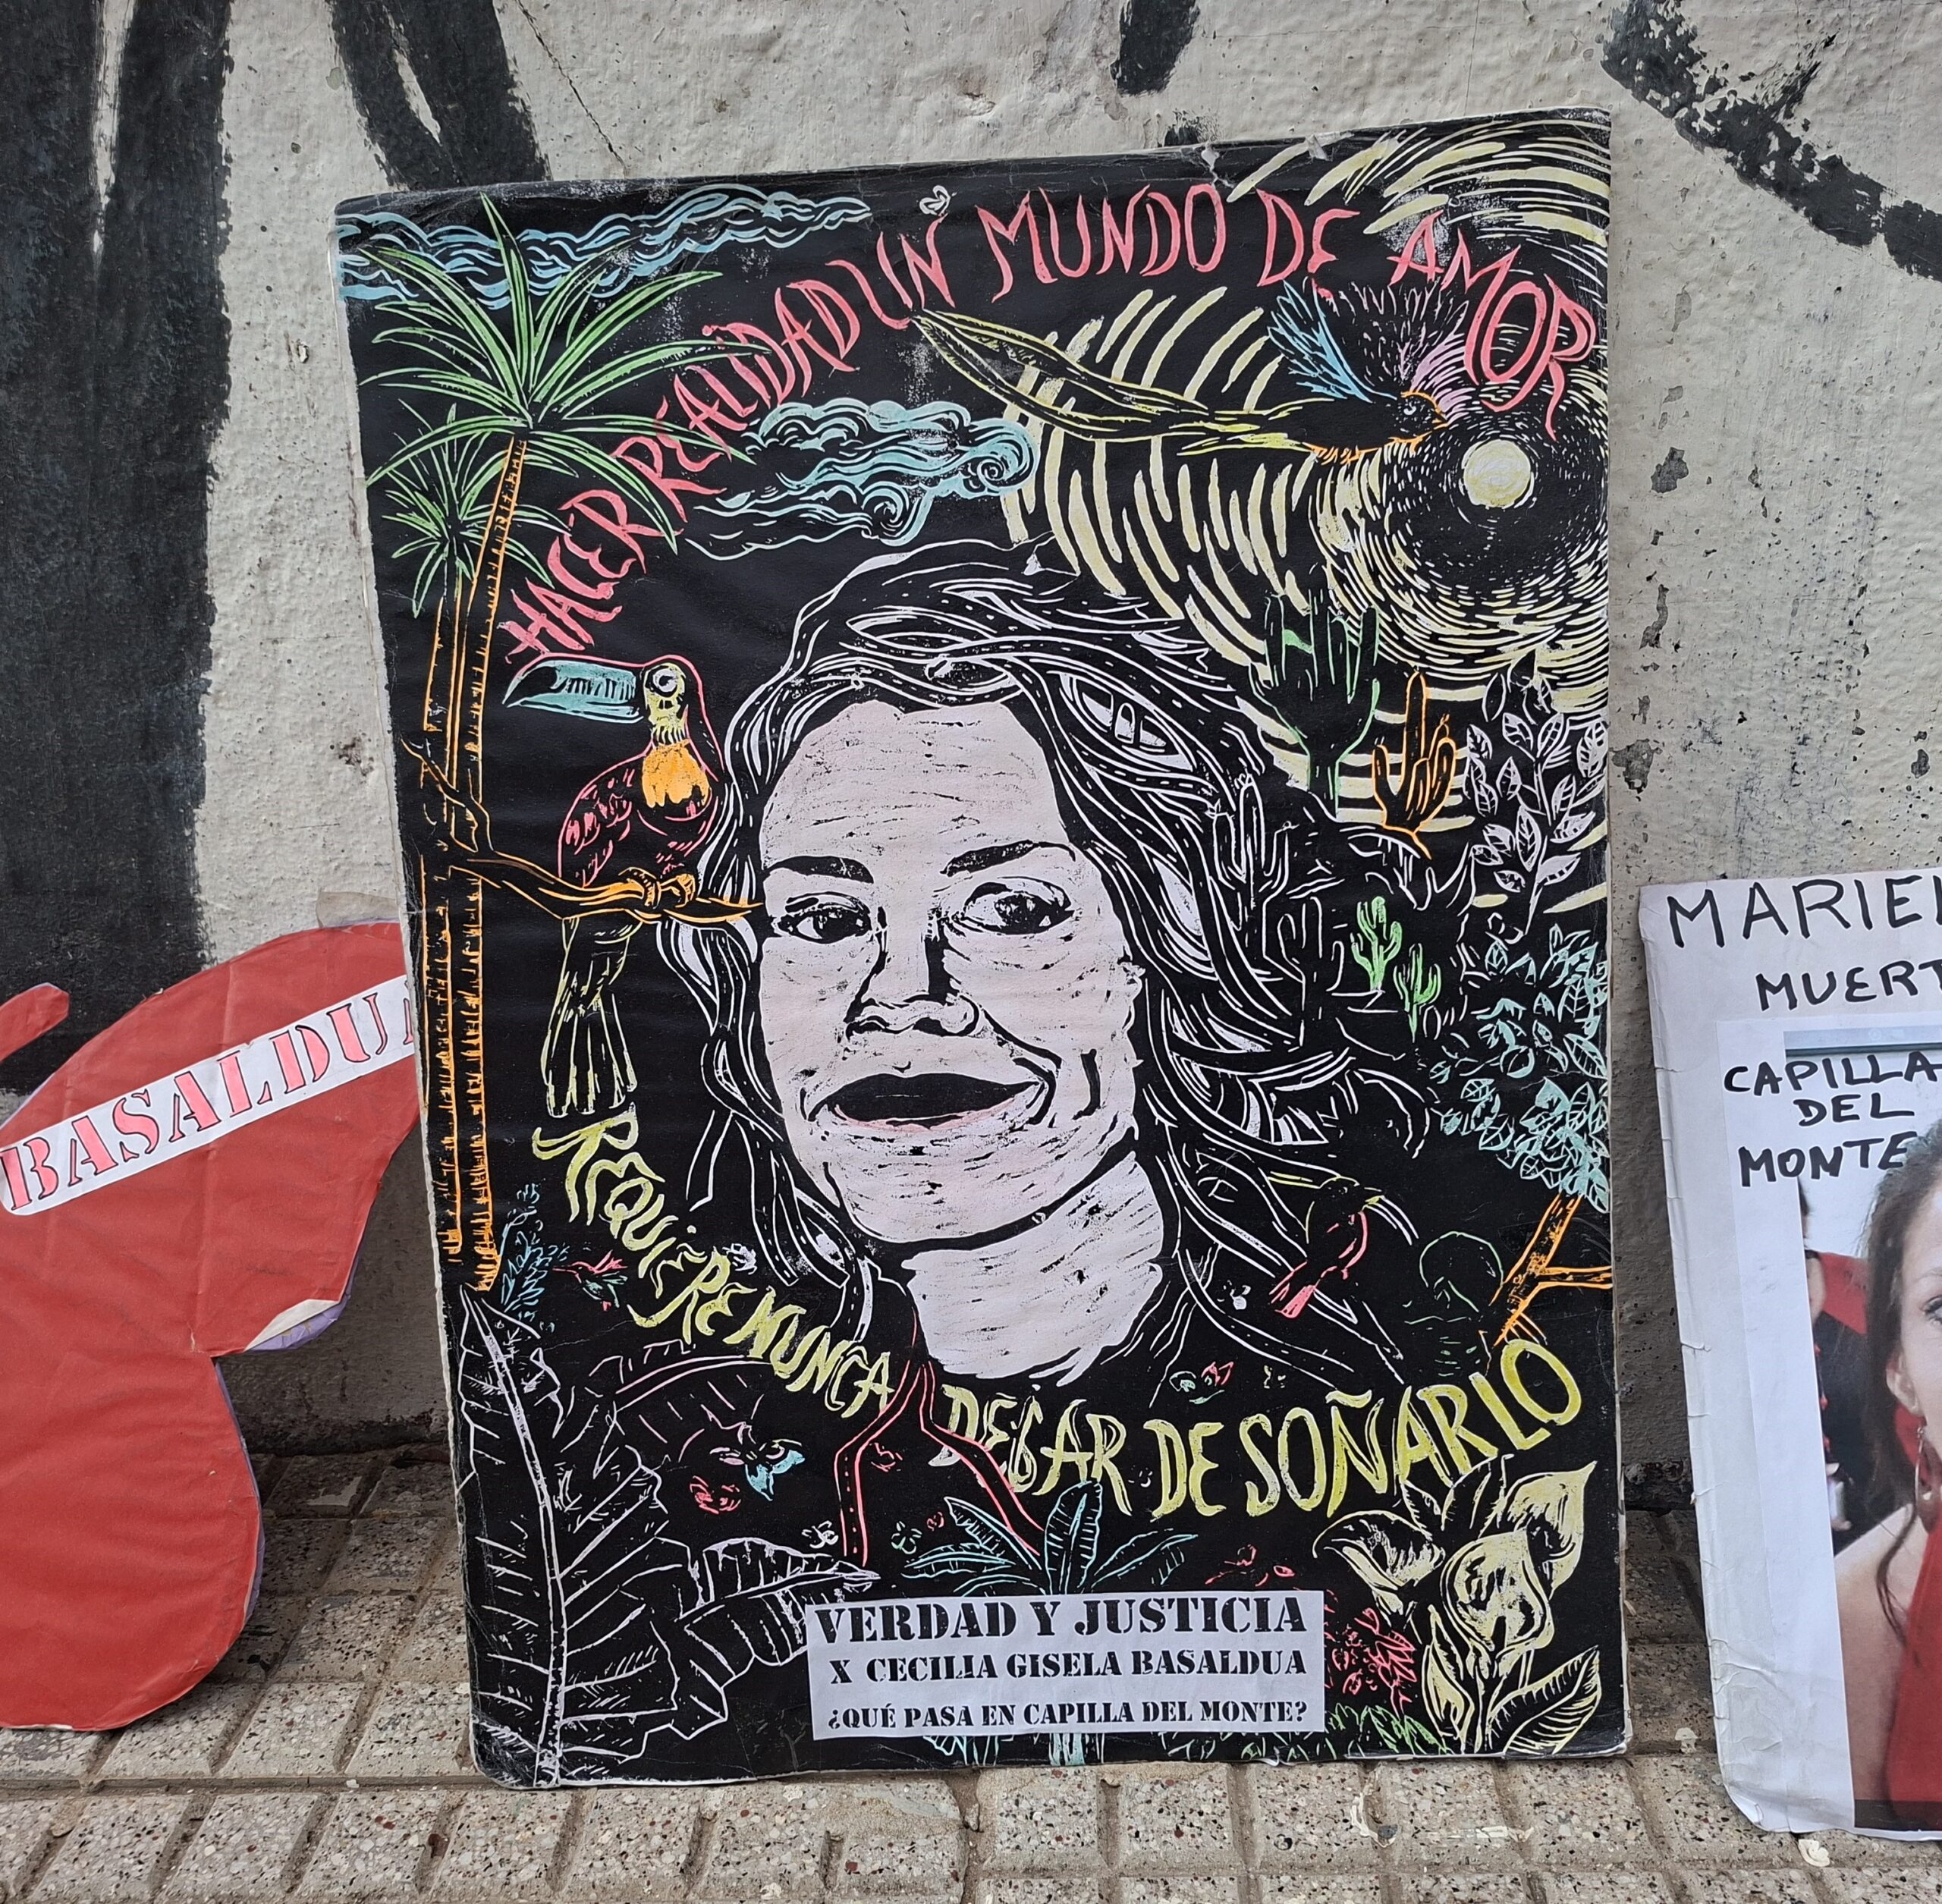 HACER REALIDAD UN MUNDO DE AMOR
REQUIERE NUNCA DEJAR DE SOÑARLO
VERDAD Y JUSTICIA
X CECILIA GISELA BASALDUA
¿QUÉ PASA EN CAPILLA DEL MONTE?
BASALDU
MARIE
MUERT
CAPILLA
DEL
MONTE